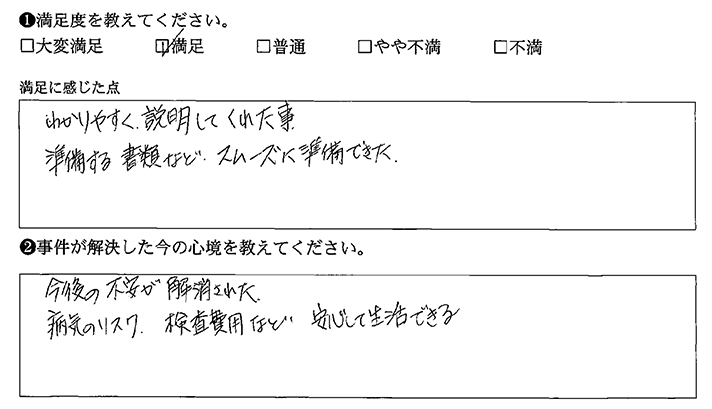 ❶満足度を教えてください。
□大変満足 ☑満足 □普通 □やや不満 □不満
満足に感じた点
わかりやすく、説明してくれた事
準備する書類など、スムーズに準備できた。
❷事件が解決した今の心境を教えてください。
今後の不安が解消された。
病気のリスク、検査費用など 安心して生活できる